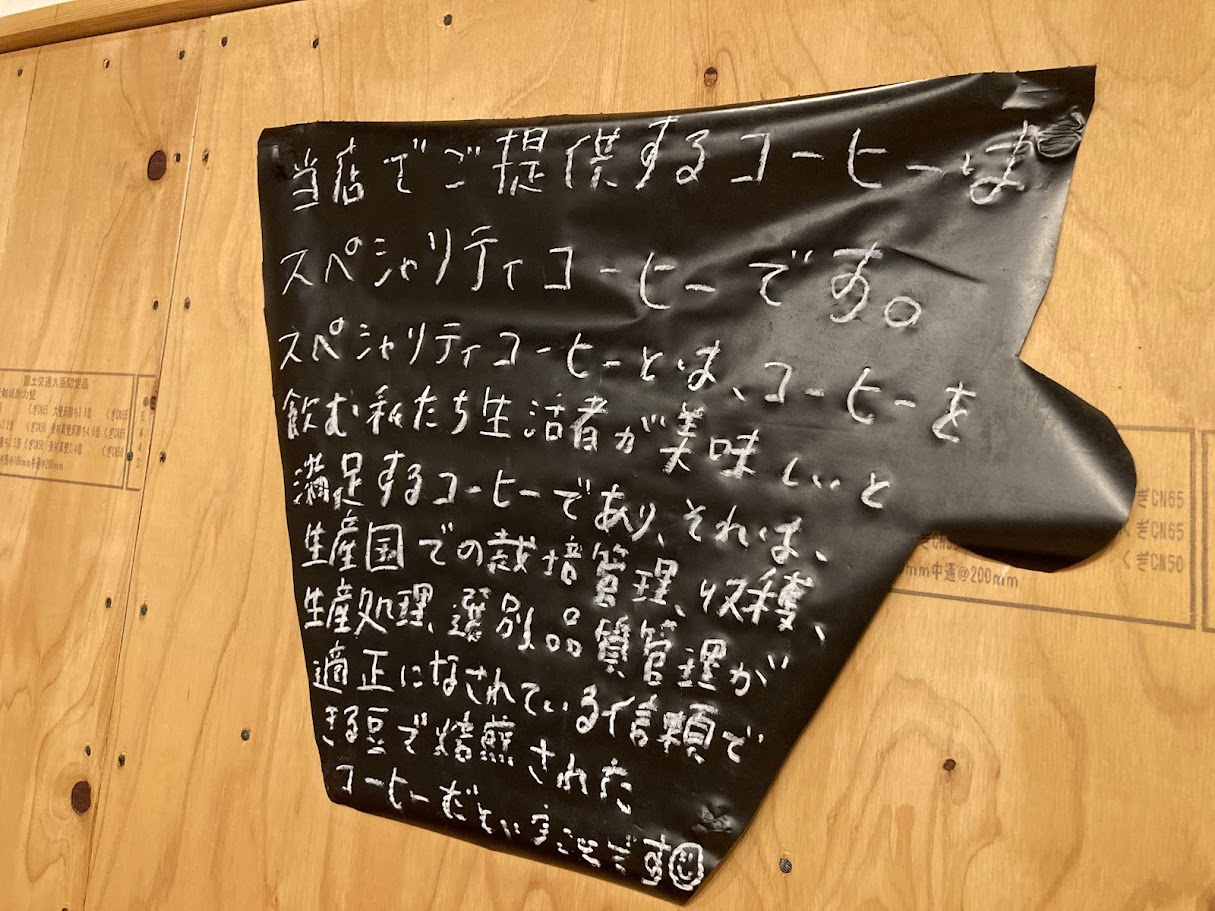 当店でご提供するコーヒーは
スペシャリティコーヒーです。
スペシャリティコーヒーとは、コーヒーを
飲む私たち生活者が美味しいと
満足するコーヒーであり、それは、
生産国での栽培管理、収穫、
生産処理、選別、品質管理が
適正になされている信頼で
きる豆で焙煎された
コーヒーだということです
国土交通大臣認定品
くぎCN65
くぎCN65
くぎCN50
mm中通@200mm